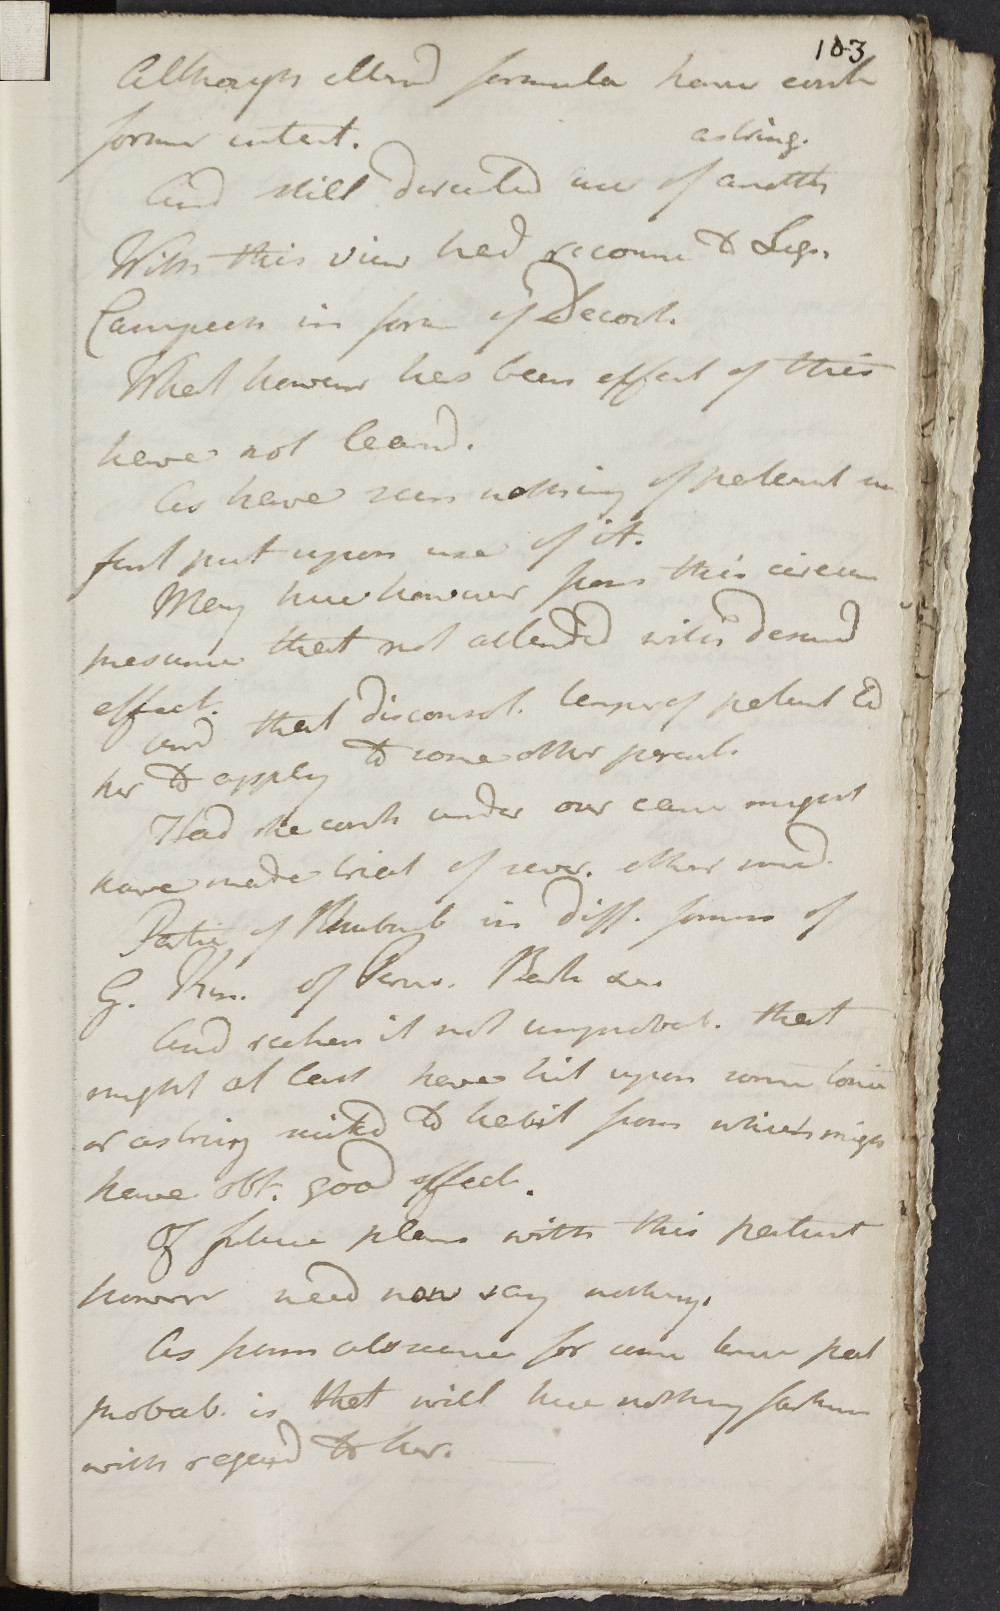 103
Although altered formula have contd
former intent.
astring.
And still directed use of another
With this view had recourse to Lign.
Campech in form of Decoct.
What however has been effect of this
have not learnd.
As have seen nothing of patient since
first put upon use of it.
May here however from this circum
presume that not attended with desired
effect.
and that disconsol. temper of patient led
her to apply to some other pract.
Had she cont. under our care might
have made trial of sever. other med.
Partic. of Rhubarb in diff. forms of
G. Kin. of Peruv. Bark &c.
And reckon it not improbab. that
might at least have hit upon some tonic
or astring suited to habit from which might
have obt. good effect.
Of future plans with this patient
however need now say nothing.
As from absence for some time past
probab. is that will hear nothing farther
with regard to her.